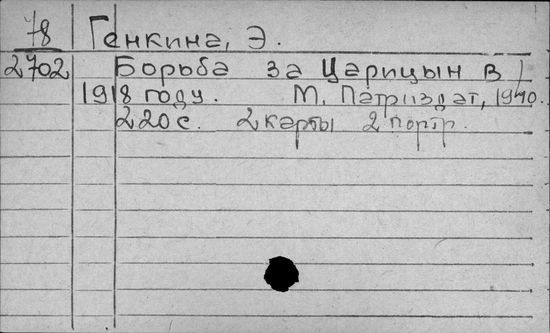 78 Генкина, Э.
2702 Борьба за Царицын в
1918 году. М. Партиздат, 1940.
220 с. 2 карты 2 портр.